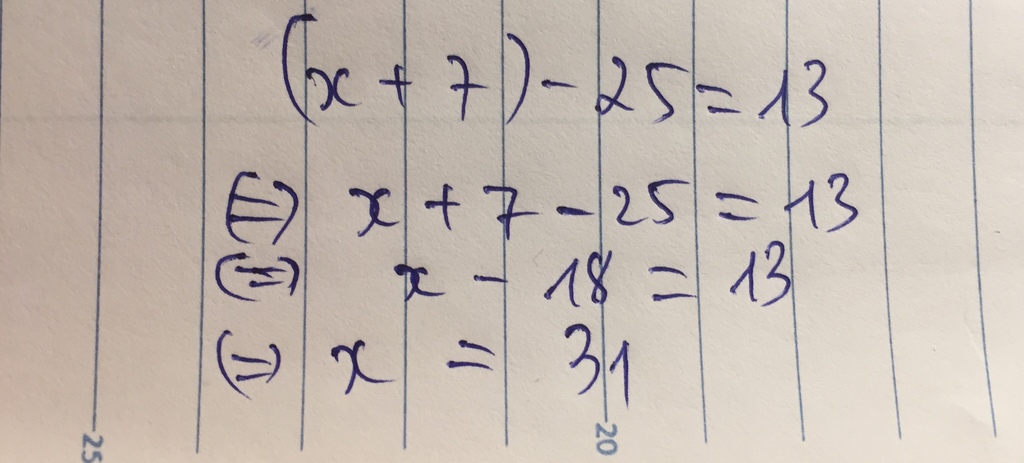 (x + 7) - 25 = 13
(=) x + 7 - 25 = 13
(=) x - 18 = 13
(=) x = 31
25
20